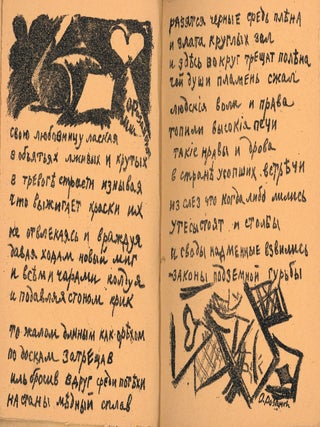 свою любовницу лаская
в объятьях лживых и крутых
в тревоге страсти изнывая
что выжигает краски их
не отвлекаясь и враждуя
давая ходам новый миг
и всеми чарами колдуя
и подавляя стоном крик
то жалом длинным как орѣхом
по доскам затрещав
иль бросив вдруг среди потѣхи
на станы мѣдный сплав
разятся черные средь плѣна
и злата круглых зал
и здѣсь вокруг трещат полѣна
чей души пламень сжал
людскія воли и права
топили высокія печи
такіе нравы и дрова
в странѣ усопших встрѣчи
из слез что когда либо лились
утесы стоят и столбы
и своды надменные взвились
законы подземной гурьбы